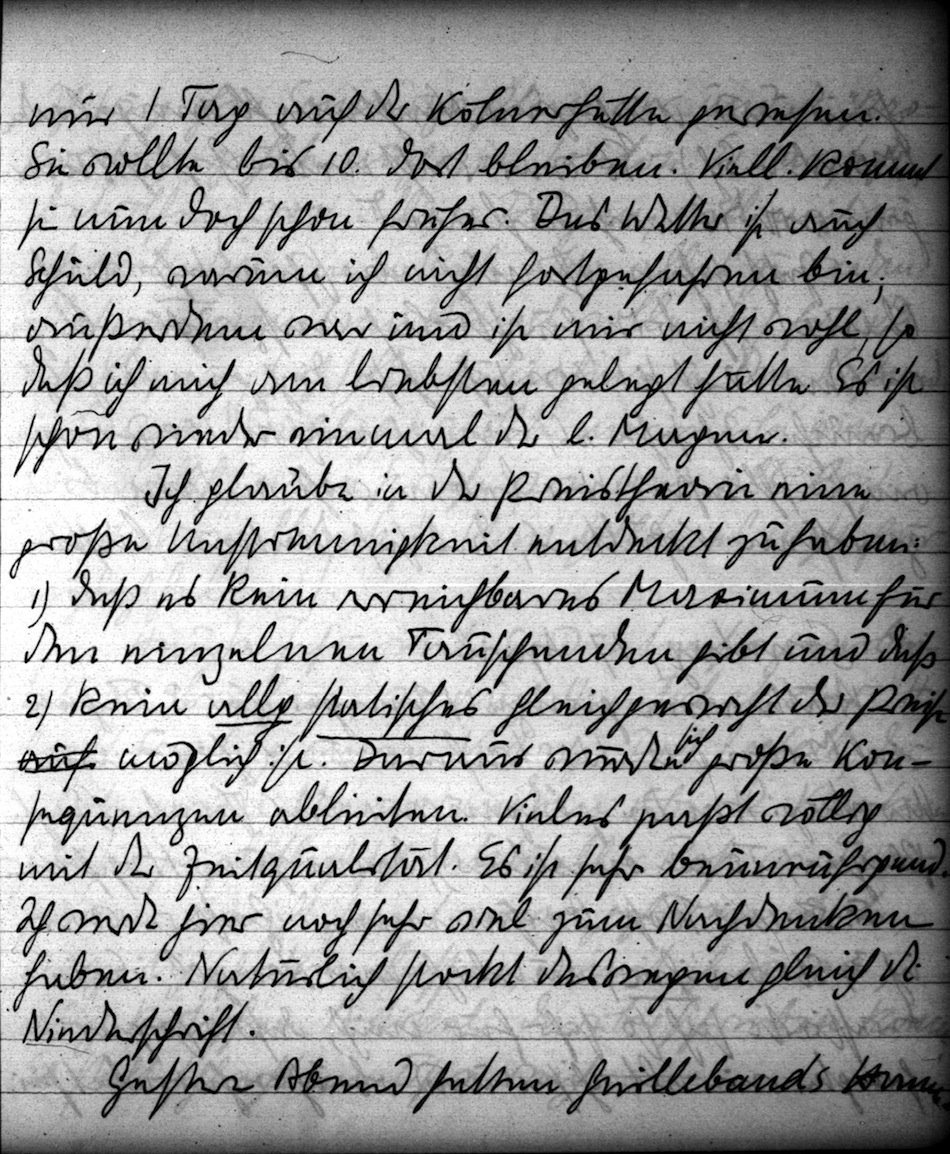 nur 1 Tag auf der Kölnerhütte gewesen.
Sie wollte bis 10. dort bleiben. Viell. kommt
sie nun doch schon früher. Das Wetter ist auch
Schuld, warum ich nicht fortgefahren bin;
außerdem war und ist mir nicht wohl, so
daß ich mich am liebsten gelegt hätte. Es ist
schon wieder einmal der l. Magen.
Ich glaube in der Preistheorie eine
große Unstimmigkeit entdeckt zu haben:
1) daß es kein erreichbares Maximum für
den einzelnen Tauschenden gibt und daß
2) kein allg statisches Gleichgewicht der Preise
auf möglich ist. Daraus werde ich große Kon-
sequenzen ableiten. Vieles paßt völlig
mit der Zeitqualität. Es ist sehr beunruhigend.
Ich werde hier noch sehr viel zum Nachdenken
haben. Natürlich stockt deswegen gleich die
Niederschrift.
Gestern Abend hatten